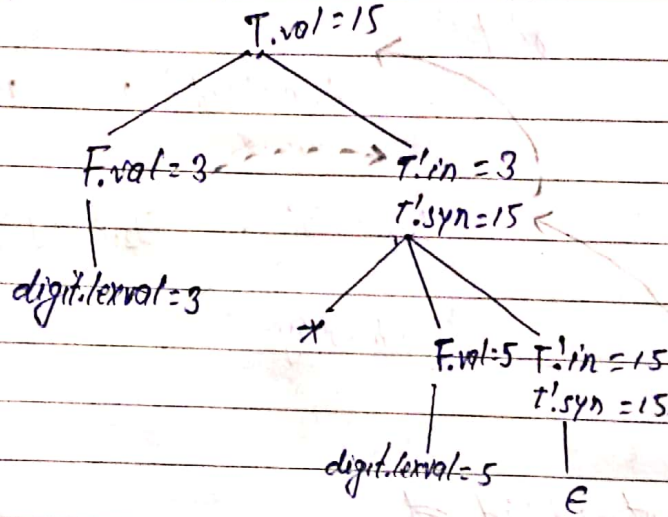 T.val=15
F.val=3
T'.in=3
T'.syn=15
digit.lexval=3
*
F.val=5
T'.in=15
T'.syn=15
digit.lexval=5
ϵ